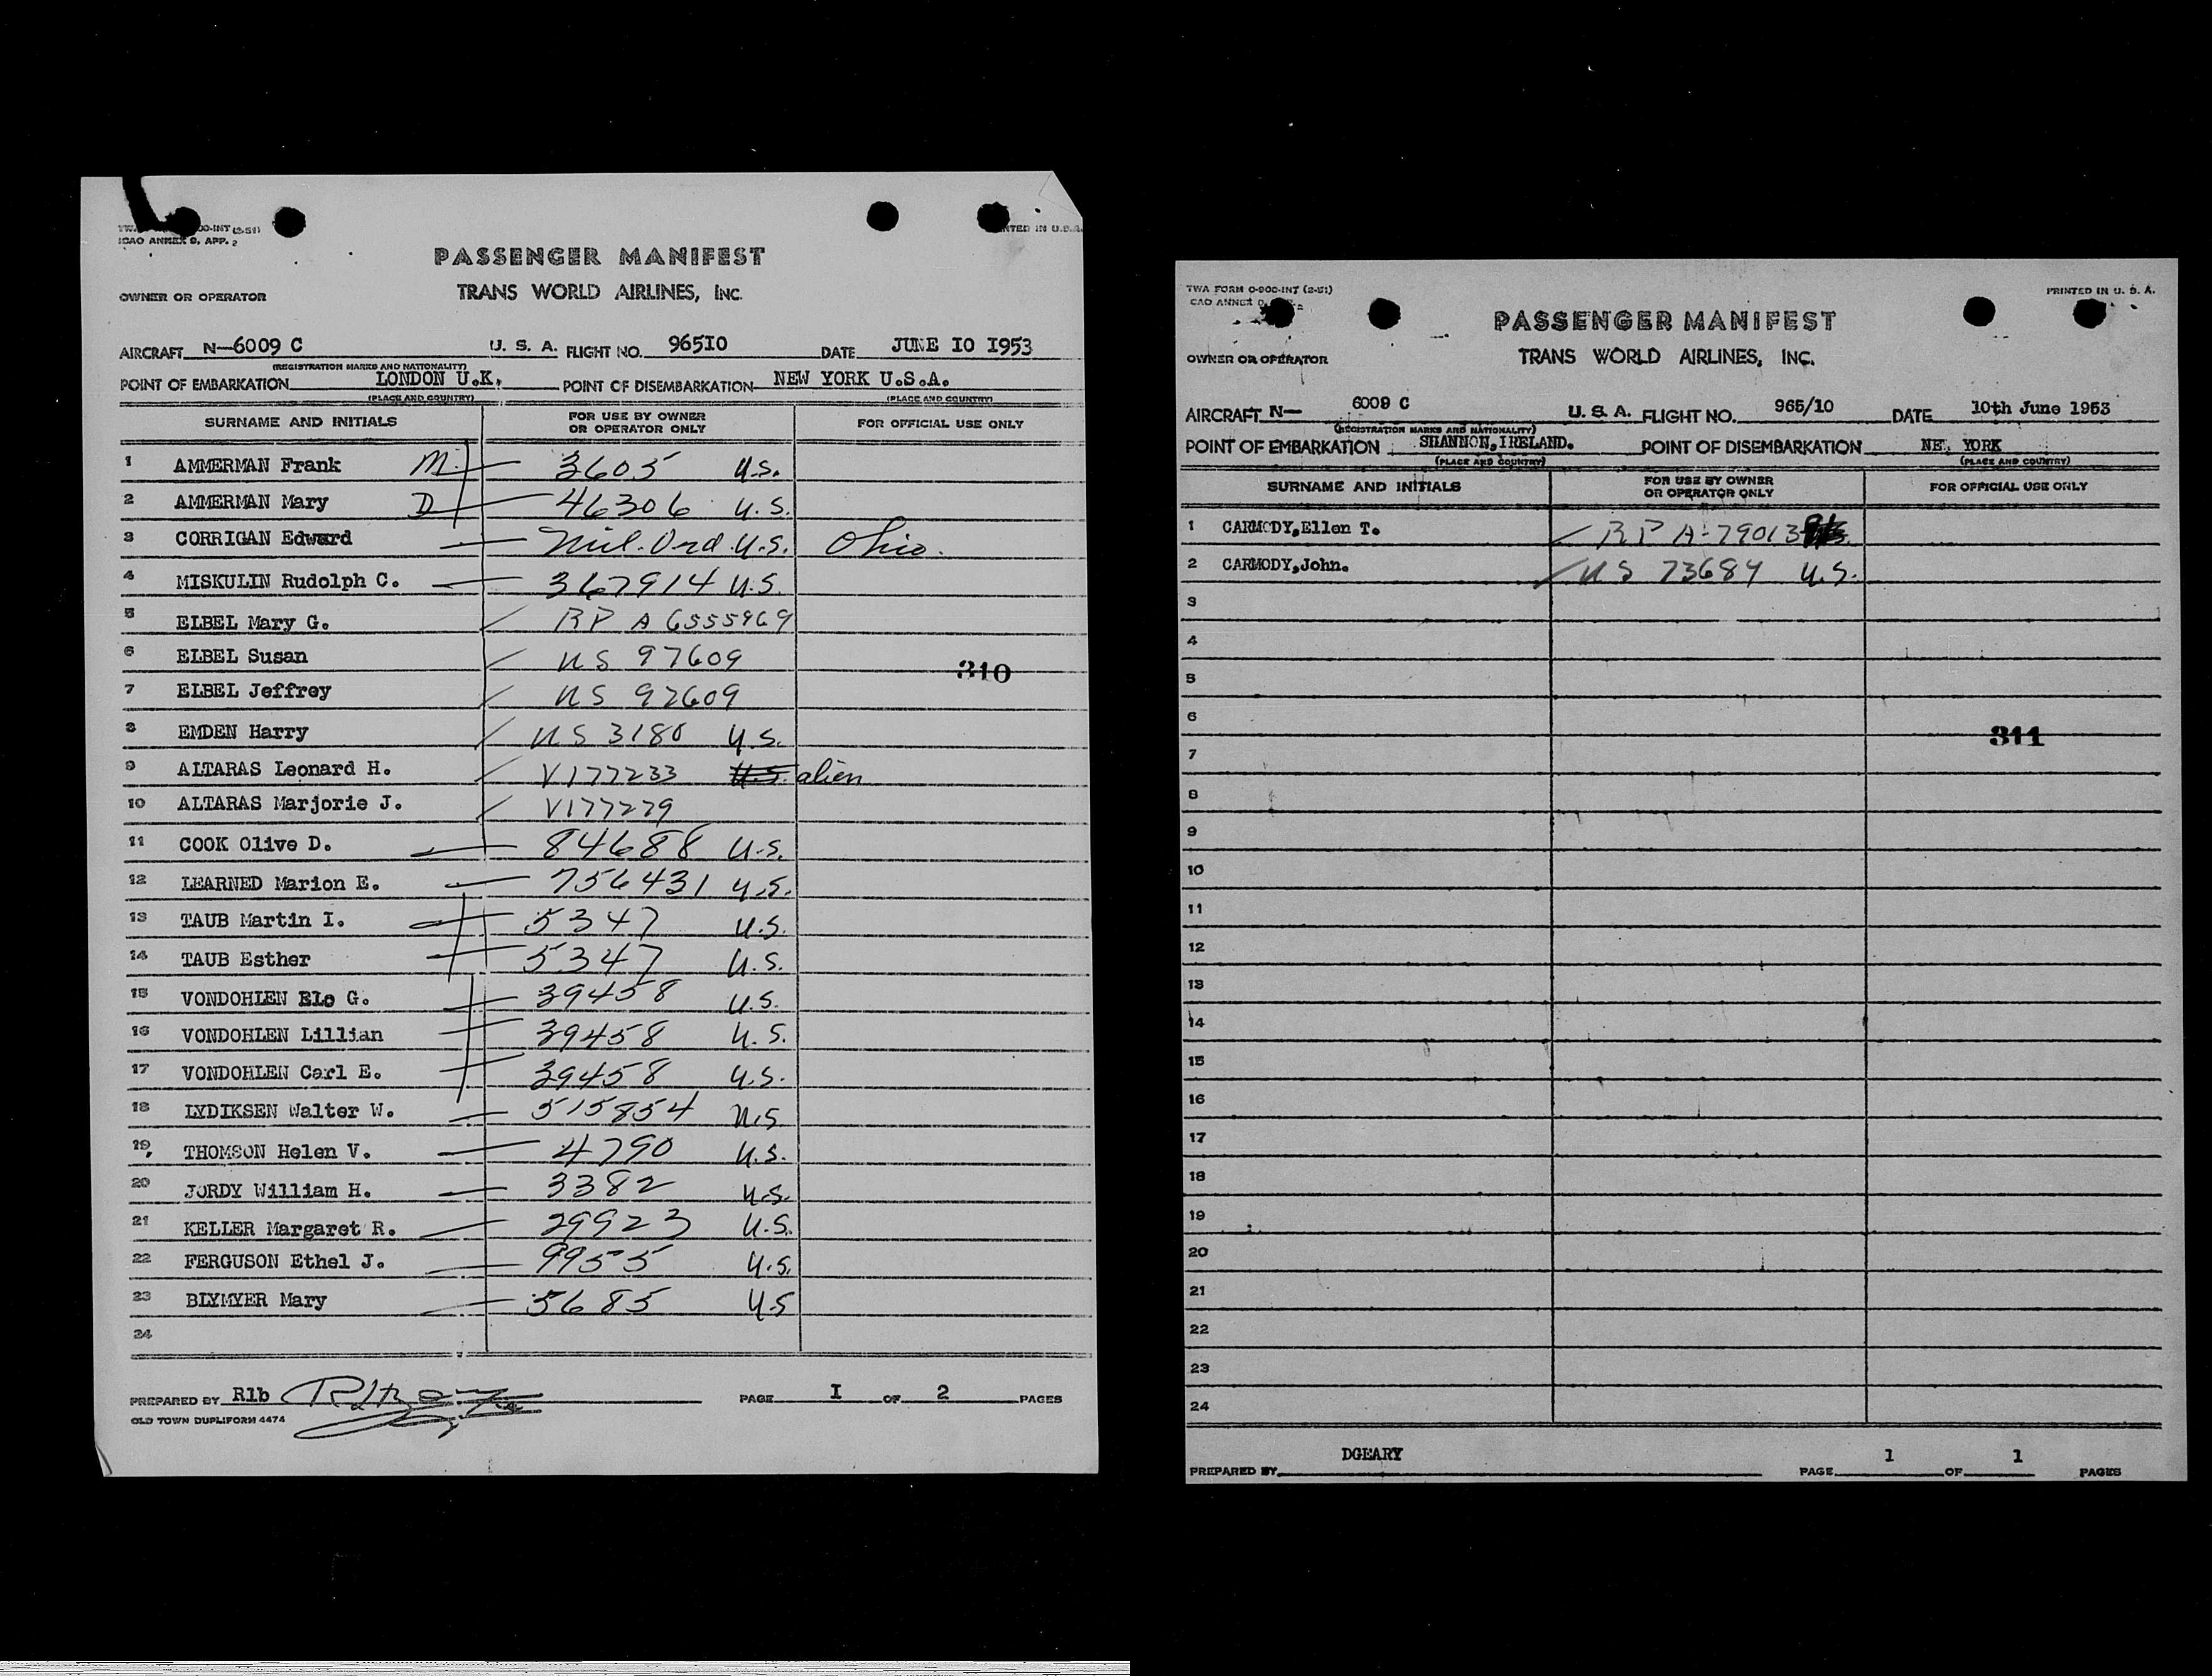 ICAO ANNEX 9, APP. 2
PRINTED IN U.S.A.
PASSENGER MANIFEST
OWNER OR OPERATOR TRANS WORLD AIRLINES, INC.
AIRCRAFT N-6009 C U. S. A. FLIGHT NO. 965I0 DATE JUNE I0 I953
(REGISTRATION MARKS AND NATIONALITY)
POINT OF EMBARKATION LONDON U.K. POINT OF DISEMBARKATION NEW YORK U.S.A.
(PLACE AND COUNTRY) (PLACE AND COUNTRY)
SURNAME AND INITIALS FOR USE BY OWNER OR OPERATOR ONLY FOR OFFICIAL USE ONLY
1 AMMERMAN Frank M 3605 U.S.
2 AMMERMAN Mary D 46306 U.S.
3 CORRIGAN Edward Mil. Ord. U.S. Ohio.
4 MISKULIN Rudolph C. 367914 U.S.
5 ELBEL Mary G. RP A 6555969
6 ELBEL Susan US 97609
310
7 ELBEL Jeffrey US 97609
8 EMDEN Harry US 3180 U.S.
9 ALTARAS Leonard H. V177233 U.S. alien
10 ALTARAS Marjorie J. V177279
11 COOK Olive D. 84688 U.S.
12 LEARNED Marion E. 756431 U.S.
13 TAUB Martin I. 5347 U.S.
14 TAUB Esther 5347 U.S.
15 VONDOHLEN Elo G. 39458 U.S.
16 VONDOHLEN Lillian 39458 U.S.
17 VONDOHLEN Carl E. 39458 U.S.
18 LYDIKSEN Walter W. 515854 U.S
19 THOMSON Helen V. 4790 U.S.
20 JORDY William H. 3382 U.S.
21 KELLER Margaret R. 29923 U.S.
22 FERGUSON Ethel J. 9955 U.S.
23 BLYMYER Mary 5685 U.S
24
PREPARED BY Rlb PAGE I OF 2 PAGES
OLD TOWN DUPLIFORM 4474
TWA FORM O-900-INT (2-51) PRINTED IN U. S. A.
CAO ANNEX
PASSENGER MANIFEST
OWNER OR OPERATOR TRANS WORLD AIRLINES, INC.
AIRCRAFT N- 6009 C U. S. A. FLIGHT NO. 965/10 DATE 10th June 1953
(REGISTRATION MARKS AND NATIONALITY)
POINT OF EMBARKATION SHANNON, IRELAND. POINT OF DISEMBARKATION NE, YORK
(PLACE AND COUNTRY) (PLACE AND COUNTRY)
SURNAME AND INITIALS FOR USE BY OWNER OR OPERATOR ONLY FOR OFFICIAL USE ONLY
1 CARMODY,Ellen T. RP A-79013
2 CARMODY,John. US 73689 U.S.
3
4
5
6
311
7
8
9
10
11
12
13
14
15
16
17
18
19
20
21
22
23
24
DGEARY
PREPARED BY PAGE 1 OF 1 PAGES